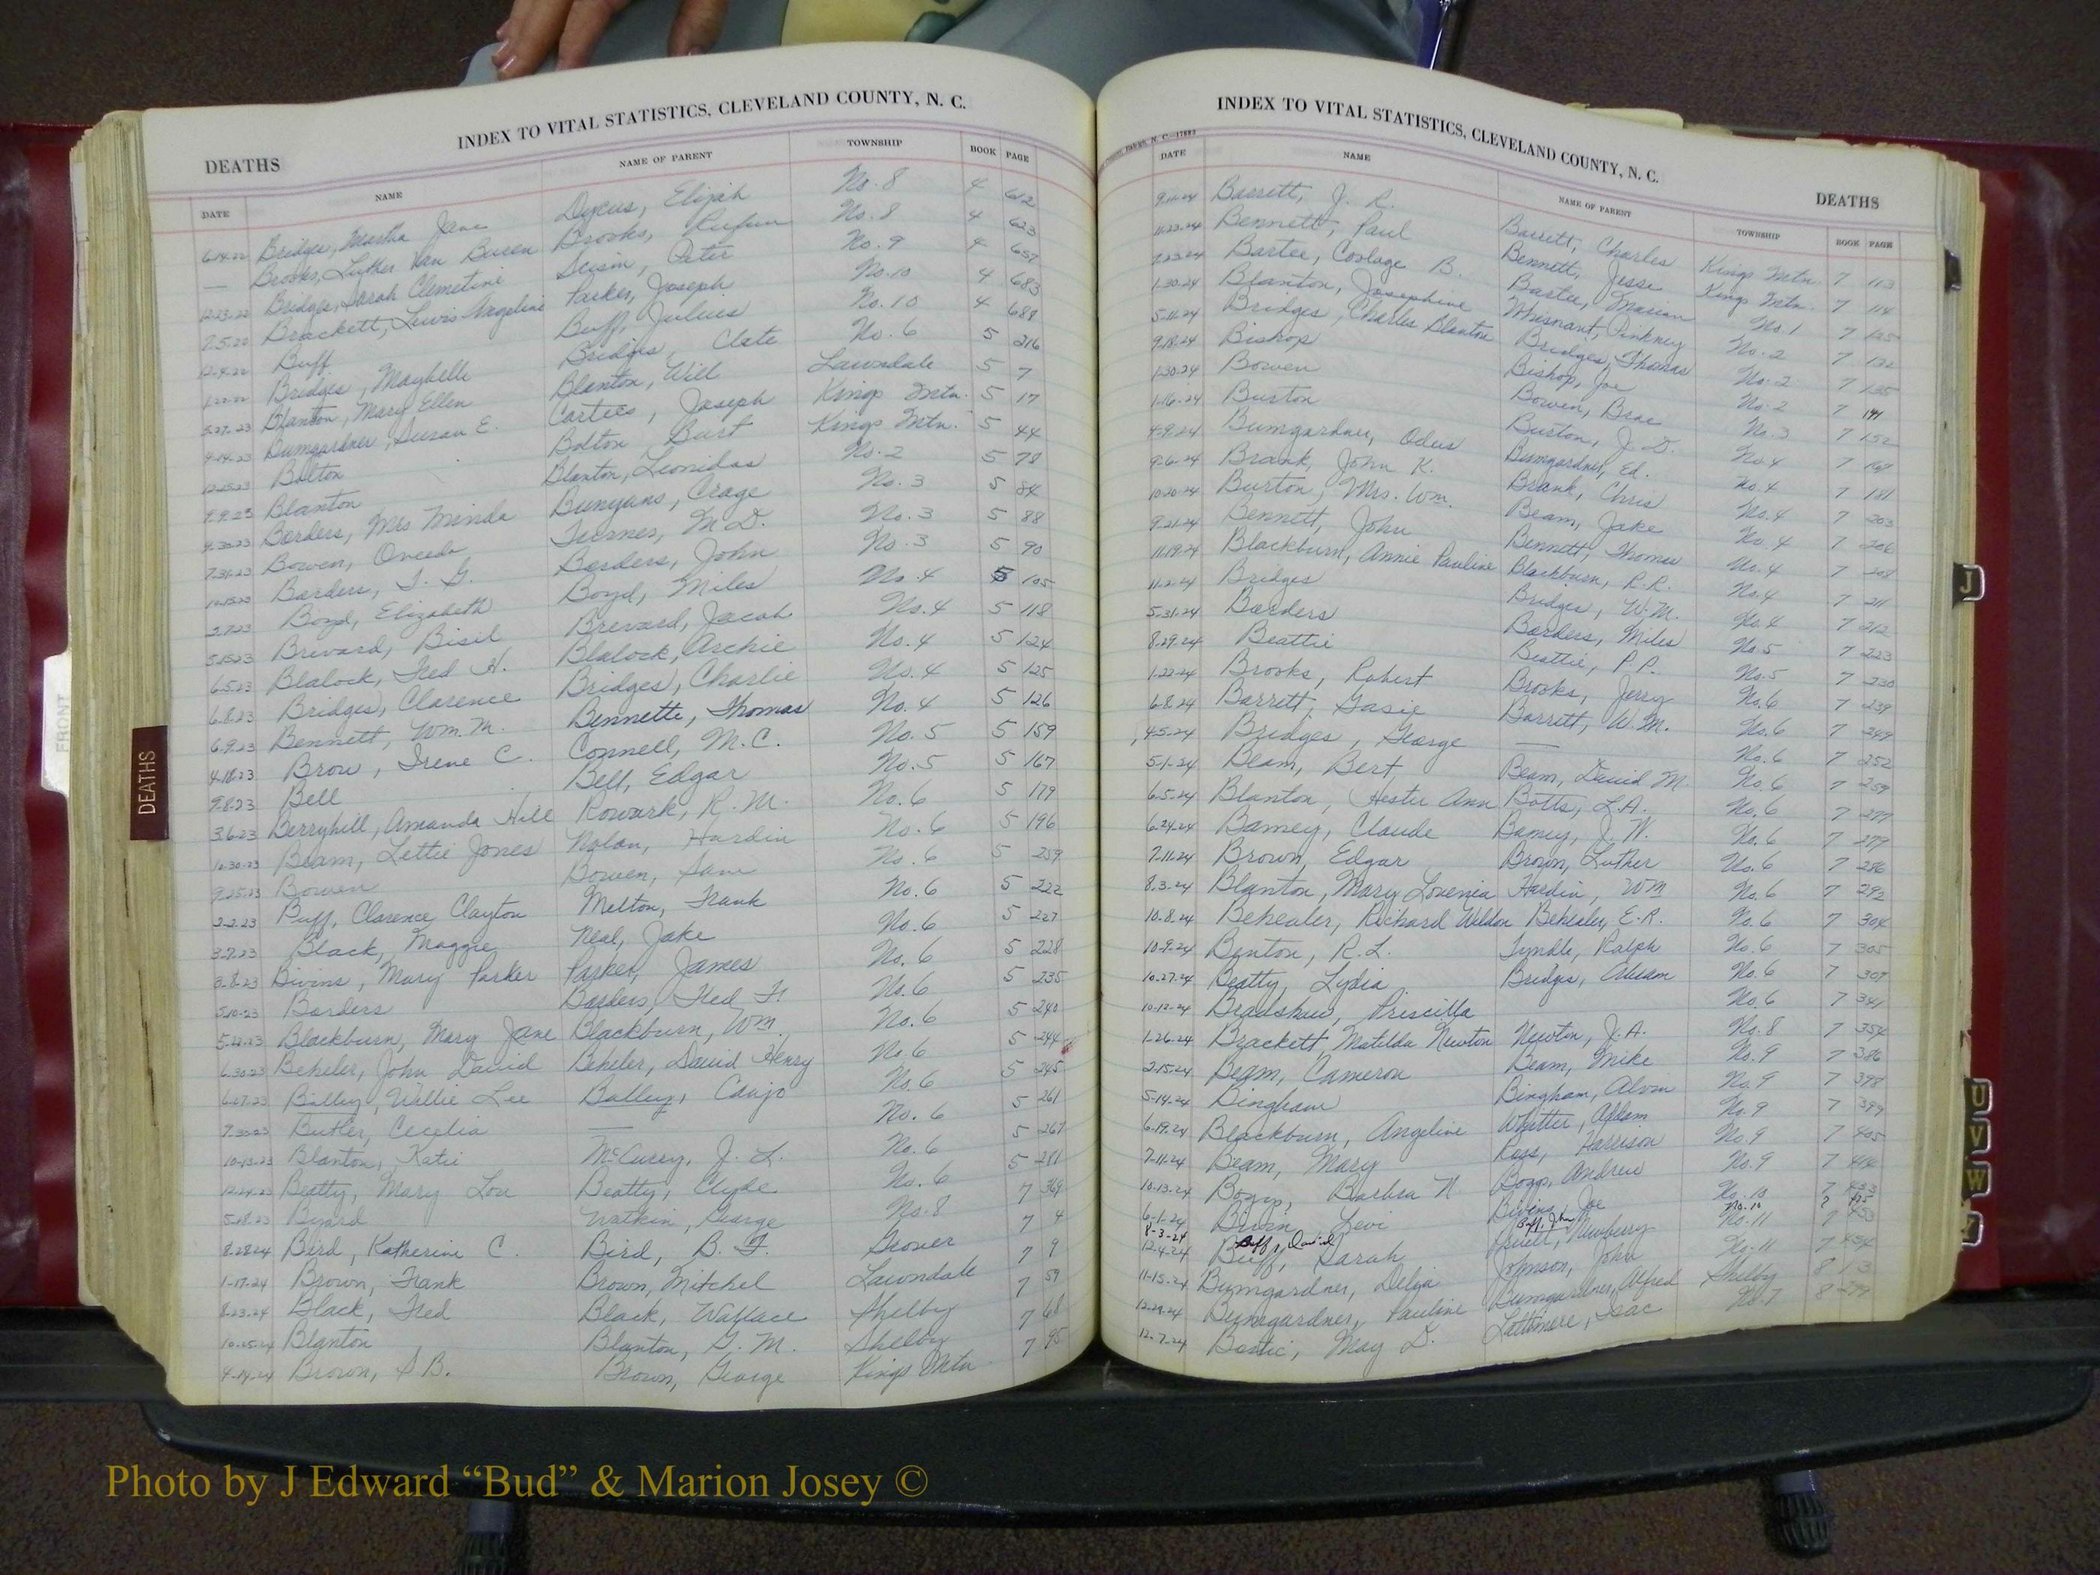 INDEX TO VITAL STATISTICS, CLEVELAND COUNTY, N. C.
DEATHS
DATE NAME NAME OF PARENT TOWNSHIP BOOK PAGE
6-14-22 Bridges, Martha Jane Dycus, Elijah No. 8 4 612
— Brooks, Luther Van Buren Brooks, Rufus No. 8 4 623
12-23-22 Bridges, Sarah Clemetine Peter No. 9 4 657
7-5-22 Brackett, Lewis Angeline Parker, Joseph No. 10 4 683
12-4-22 Buff Buff, Julius No. 10 4 689
1-22-22 Bridges, Maybelle Bridges, Clate No. 6 5 216
5-27-23 Blanton, Mary Ellen Blanton, Will Lawndale 5 7
9-14-23 Bumgardner, Susan E. Joseph Kings Mtn. 5 17
12-25-23 Bolton Bolton Burt Kings Mtn. 5 44
9-9-23 Blanton Blanton, Leonidas No. 2 5 78
9-30-23 Borders, Mrs Minda Crage No. 3 5 84
7-31-23 Bowen, Turner, M.D. No. 3 5 88
10-15-23 Borders, T. G. Borders, John No. 3 5 90
2-7-23 Boyd, Elizabeth Boyd, Miles No. 4 5 105
5-15-23 Brevard, Bisil Brevard, Jacob No. 4 5 118
6-5-23 Blalock, Fred H. Blalock, Archie No. 4 5 124
6-8-23 Bridges, Clarence Bridges, Charlie No. 4 5 125
6-9-23 Bennett, Wm. M. Bennette, Thomas No. 4 5 126
4-18-23 Brow, Irene C. Connell, M. C. No. 5 5 159
9-8-23 Bell Bell, Edgar No. 5 5 167
3-6-23 Berryhill, Amanda Hill Rowark, R. M. No. 6 5 179
Beam, Lettie Jones Nolan, Hardin No. 6 5 196
9-25-23 Bowen Bowen, Sam No. 6 5 259
2-2-23 Buff, Clarence Clayton Melton, Frank No. 6 5 222
3-7-23 Black, Maggie Neal, Jake No. 6 5 227
3-8-23 Bivins, Mary Parker Parker, James No. 6 5 228
5-10-23 Borders Borders, Fred F. No. 6 5 235
5-22-23 Blackburn, Mary Jane Blackburn, Wm. No. 6 5 240
6-30-23 Beheler, John David Beheler, David Henry No. 6 5 244
Willie Lee No. 6 5 245
7-30-23 Butler, Cecelia — No. 6 5 261
10-13-23 Blanton, Katie McCurry, J. L. No. 6 5 267
12-24-23 Beatty, Mary Lou Beatty, Clyde No. 6 5 281
5-18-23 Byard Watkin, George No. 8 7 369
8-28-24 Bird, Katherine C. Bird, B. F. Grover 7 4
1-17-24 Brown, Frank Brown, Mitchel Lawndale 7 9
8-23-24 Black, Fred Black, Wallace Shelby 7 59
10-25-24 Blanton Blanton, G. M. Shelby 7 68
4-14-24 Brown, S B. Brown, George Kings Mtn 7 95
INDEX TO VITAL STATISTICS, CLEVELAND COUNTY, N. C.
DEATHS
DATE NAME NAME OF PARENT TOWNSHIP BOOK PAGE
9-11-24 Barrett, J. R. Barrett, Charles Kings Mtn. 7 113
11-23-24 Bennett, Paul Bennett, Jesse Kings Mtn. 7 114
7-23-24 Bartee, Coolage B. Bartee, Marion No. 1 7 125
1-30-24 Blanton, Josephine Whisnant, Pinkney No. 2 7 132
5-11-24 Bridges, Charles Blanton Bridges, Thomas No. 2 7 135
9-18-24 Bishop Bishop, Joe No. 2 7 144
1-30-24 Bowen Bowen, Brae No. 3 7 152
1-16-24 Burton Burton, J. D. No. 4 7
4-9-24 Bumgardner, Odus Bumgardner, Ed. No. 4 7 181
9-6-24 Brank, John K. Brank, Chris No. 4 7 203
10-20-24 Burton, Mrs. Wm. Beam, Jake No. 4 7 206
9-21-24 Bennett, John Bennett, Thomas No. 4 7 208
11-19-24 Blackburn, Annie Pauline Blackburn, R. R. No. 4 7 211
11-2-24 Bridges Bridges, W. M. No. 4 7 212
5-31-24 Borders Borders, Miles No. 5 7 223
8-29-24 Beattie Beattie, P. P. No. 5 7 230
1-22-24 Brooks, Robert Brooks, Jerry No. 6 7 239
6-8-24 Barrett, Gasie Barrett, W. M. No. 6 7 249
4-5-24 Bridges, George — No. 6 7 252
5-1-24 Beam, Bert Beam, David M. No. 6 7 259
6-5-24 Blanton, Hester Ann Botts, L. A. No. 6 7 277
6-24-24 Bamey, Claude Bamey, J. W. No. 6 7 279
7-11-24 Brown, Edgar Brown, Luther No. 6 7 286
8-3-24 Blanton, Mary Lovenia Hardin, Wm No. 6 7 292
10-8-24 Behealer, Richard Weldon Behealer, E. R. No. 6 7 304
10-9-24 Benton, R. L. Tyndle, Ralph No. 6 7 305
10-27-24 Beatty, Lydia Bridges, Abram No. 6 7 307
10-12-24 Bradshaw, Priscilla No. 6 7 341
1-26-24 Brackett, Matilda Newton Newton, J. A. No. 8 7 354
2-15-24 Beam, Cameron Beam, Mike No. 9 7 386
5-14-24 Bingham Bingham, Alvin No. 9 7 398
6-19-24 Blackburn, Angeline Addam No. 9 7 399
7-11-24 Beam, Mary Ross, Harrison No. 9 7 405
10-13-24 Boggs, Barbra N. Boggs, Andrew No. 9 7 414
6-1-24 Bivin Levi Bivins Joe No. 10 7 433
8-3-24 Buff, David Buff, John No. 10 7 435
12-4-24 Buff, Sarah Newberry No. 11 7 453
11-15-24 Bumgardner, Delia Johnson, John No. 11 7 454
12-29-24 Bumgardner, Pauline Bumgardner, Alfred Shelby 8 13
12-7-24 Bostic, May D. Lattimore, Isac No. 7 8 299
DEATHS
FRONT
J
U
V
W
Photo by J Edward “Bud” & Marion Josey ©